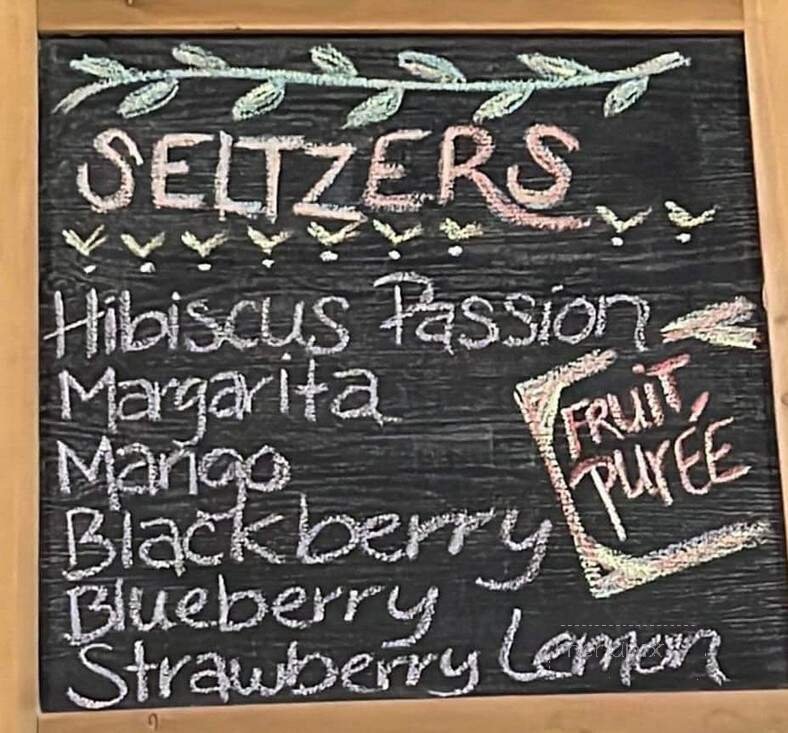 SELTZERS
Hibiscus Passion
Margarita
Mango
Blackberry
Blueberry
Strawberry Lemon
FRUIT
PURÉE